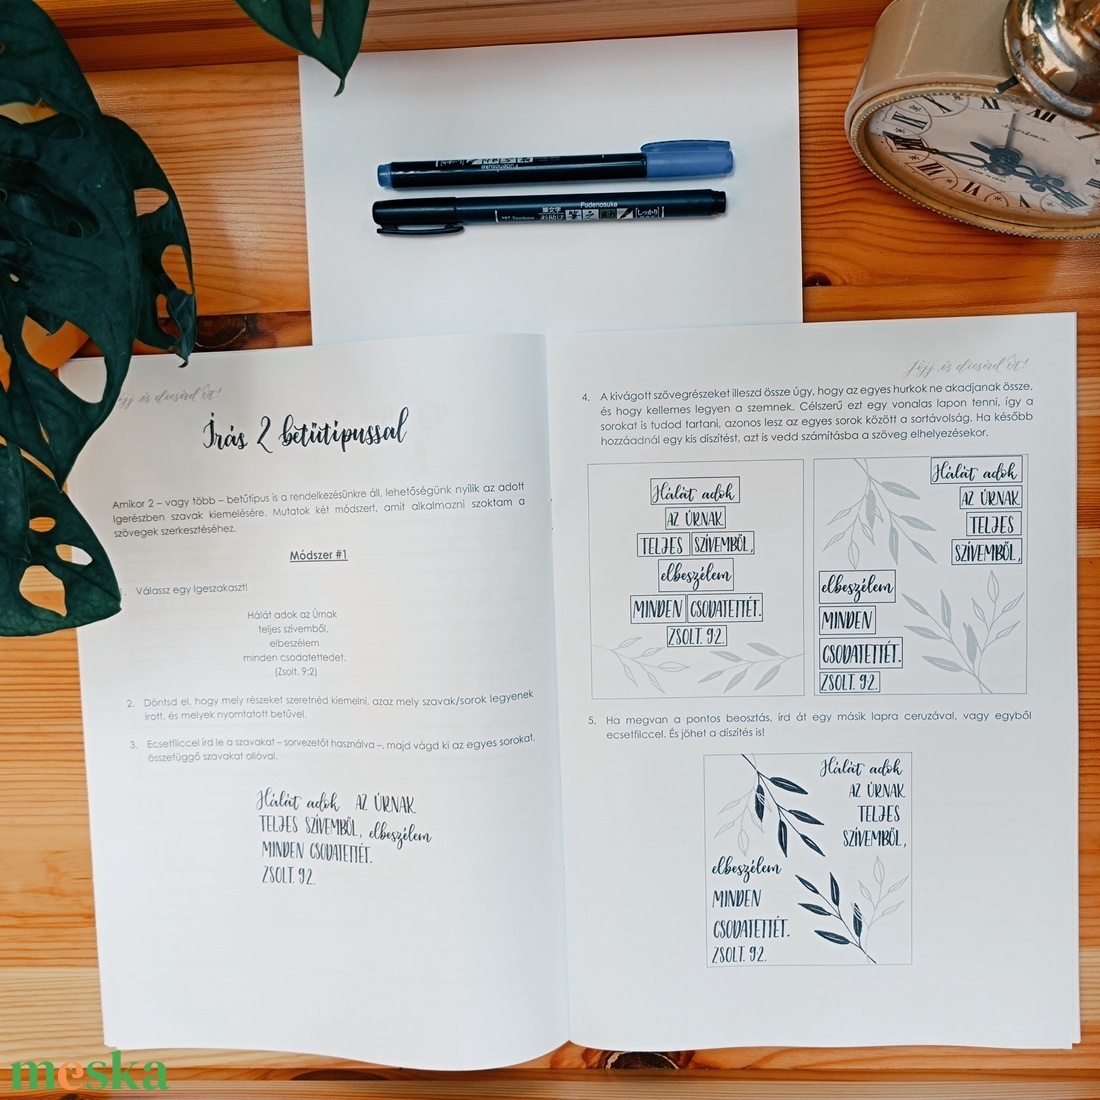 Fudenosuke
Tombow
Fudenosuke
筆文字
しっかり
XII
Jöjj és dicsérd Őt!
Írás 2 betűtípussal
Amikor 2 – vagy több – betűtípus is a rendelkezésünkre áll, lehetőségünk nyílik az adott
Igerészben szavak kiemelésére. Mutatok két módszert, amit alkalmazni szoktam a
szövegek szerkesztéséhez.
Módszer #1
1. Válassz egy Igeszakaszt!
Hálát adok az Úrnak
teljes szívemből,
elbeszélem
minden csodatettedet.
(Zsolt. 9:2)
2. Döntsd el, hogy mely részeket szeretnéd kiemelni, azaz mely szavak/sorok legyenek
írott, és melyek nyomtatott betűvel.
3. Ecsetfilccel írd le a szavakat – sorvezetőt használva –, majd vágd ki az egyes sorokat,
összefüggő szavakat ollóval.
Hálát adok AZ ÚRNAK
TELJES SZÍVEMBŐL, elbeszélem
MINDEN CSODATETTÉT.
ZSOLT. 9:2.
Jöjj és dicsérd Őt!
4. A kivágott szövegrészeket illeszd össze úgy, hogy az egyes hurkok ne akadjanak össze,
és hogy kellemes legyen a szemnek. Célszerű ezt egy vonalas lapon tenni, így a
sorokat is tudod tartani, azonos lesz az egyes sorok között a sortávolság. Ha később
hozzáadnál egy kis díszítést, azt is vedd számításba a szöveg elhelyezésekor.
Hálát adok
AZ ÚRNAK
TELJES SZÍVEMBŐL,
elbeszélem
MINDEN CSODATETTÉT.
ZSOLT. 9:2.
Hálát adok
AZ ÚRNAK
TELJES
SZÍVEMBŐL,
elbeszélem
MINDEN
CSODATETTÉT.
ZSOLT. 9:2.
5. Ha megvan a pontos beosztás, írd át egy másik lapra ceruzával, vagy egyből
ecsetfilccel. És jöhet a díszítés is!
Hálát adok
AZ ÚRNAK
TELJES
SZÍVEMBŐL,
elbeszélem
MINDEN
CSODATETTÉT.
ZSOLT. 9:2.
meska